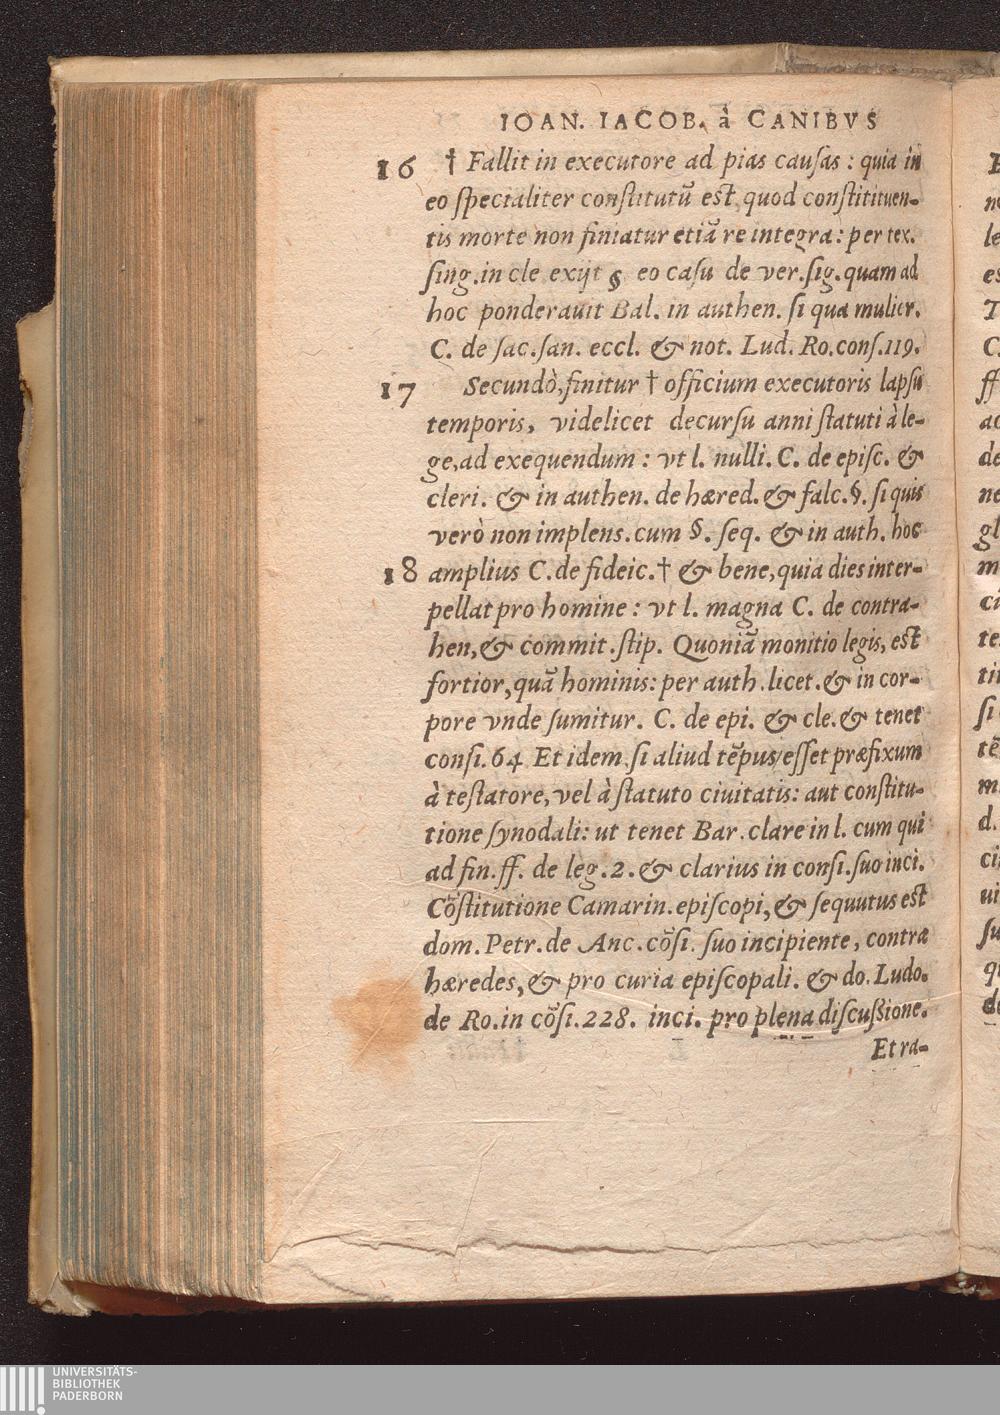 IOAN. IACOB. à CANIBVS
16 † Fallit in executore ad pias cauſas : quia in
eo ſpecialiter conſtitutũ est, quod conſtituen-
tis morte non finiatur etiã re integra: per tex.
ſing. in cle exijt § eo caſu de ver. ſig. quam ad
hoc ponderauit Bal. in authen. ſi qua mulier.
C. de ſac. ſan. eccl. & not. Lud. Ro. conſ. 119.
17 Secundò, finitur † officium executoris lapſu
temporis, videlicet decurſu anni ſtatuti à le-
ge, ad exequendum : vt l. nulli. C. de epiſc. &
cleri. & in authen. de hæred. & falc. §. ſi quis
verò non implens. cum §. ſeq. & in auth. hoc
18 amplius C. de fideic. † & bene, quia dies inter-
pellat pro homine : vt l. magna C. de contra-
hen, & commit. ſtip. Quoniã monitio legis, est
fortior, quã hominis: per auth. licet. & in cor-
pore vnde ſumitur. C. de epi. & cle. & tenet
conſi. 64 Et idem ſi aliud tẽpus eſſet præfixum
à teſtatore, vel à ſtatuto ciuitatis: aut conſtitu-
tione ſynodali: ut tenet Bar. clare in l. cum qui
ad fin. ff. de leg. 2. & clarius in conſi. ſuo inci.
Cõſtitutione Camarin. epiſcopi, & ſequutus est
dom. Petr. de Anc. cõſi. ſuo incipiente, contra
hæredes, & pro curia epiſcopali. & do. Ludo.
de Ro. in cõſi. 228. inci. pro plena diſcuſsione.
Et ra-
UNIVERSITÄTS-
BIBLIOTHEK
PADERBORN